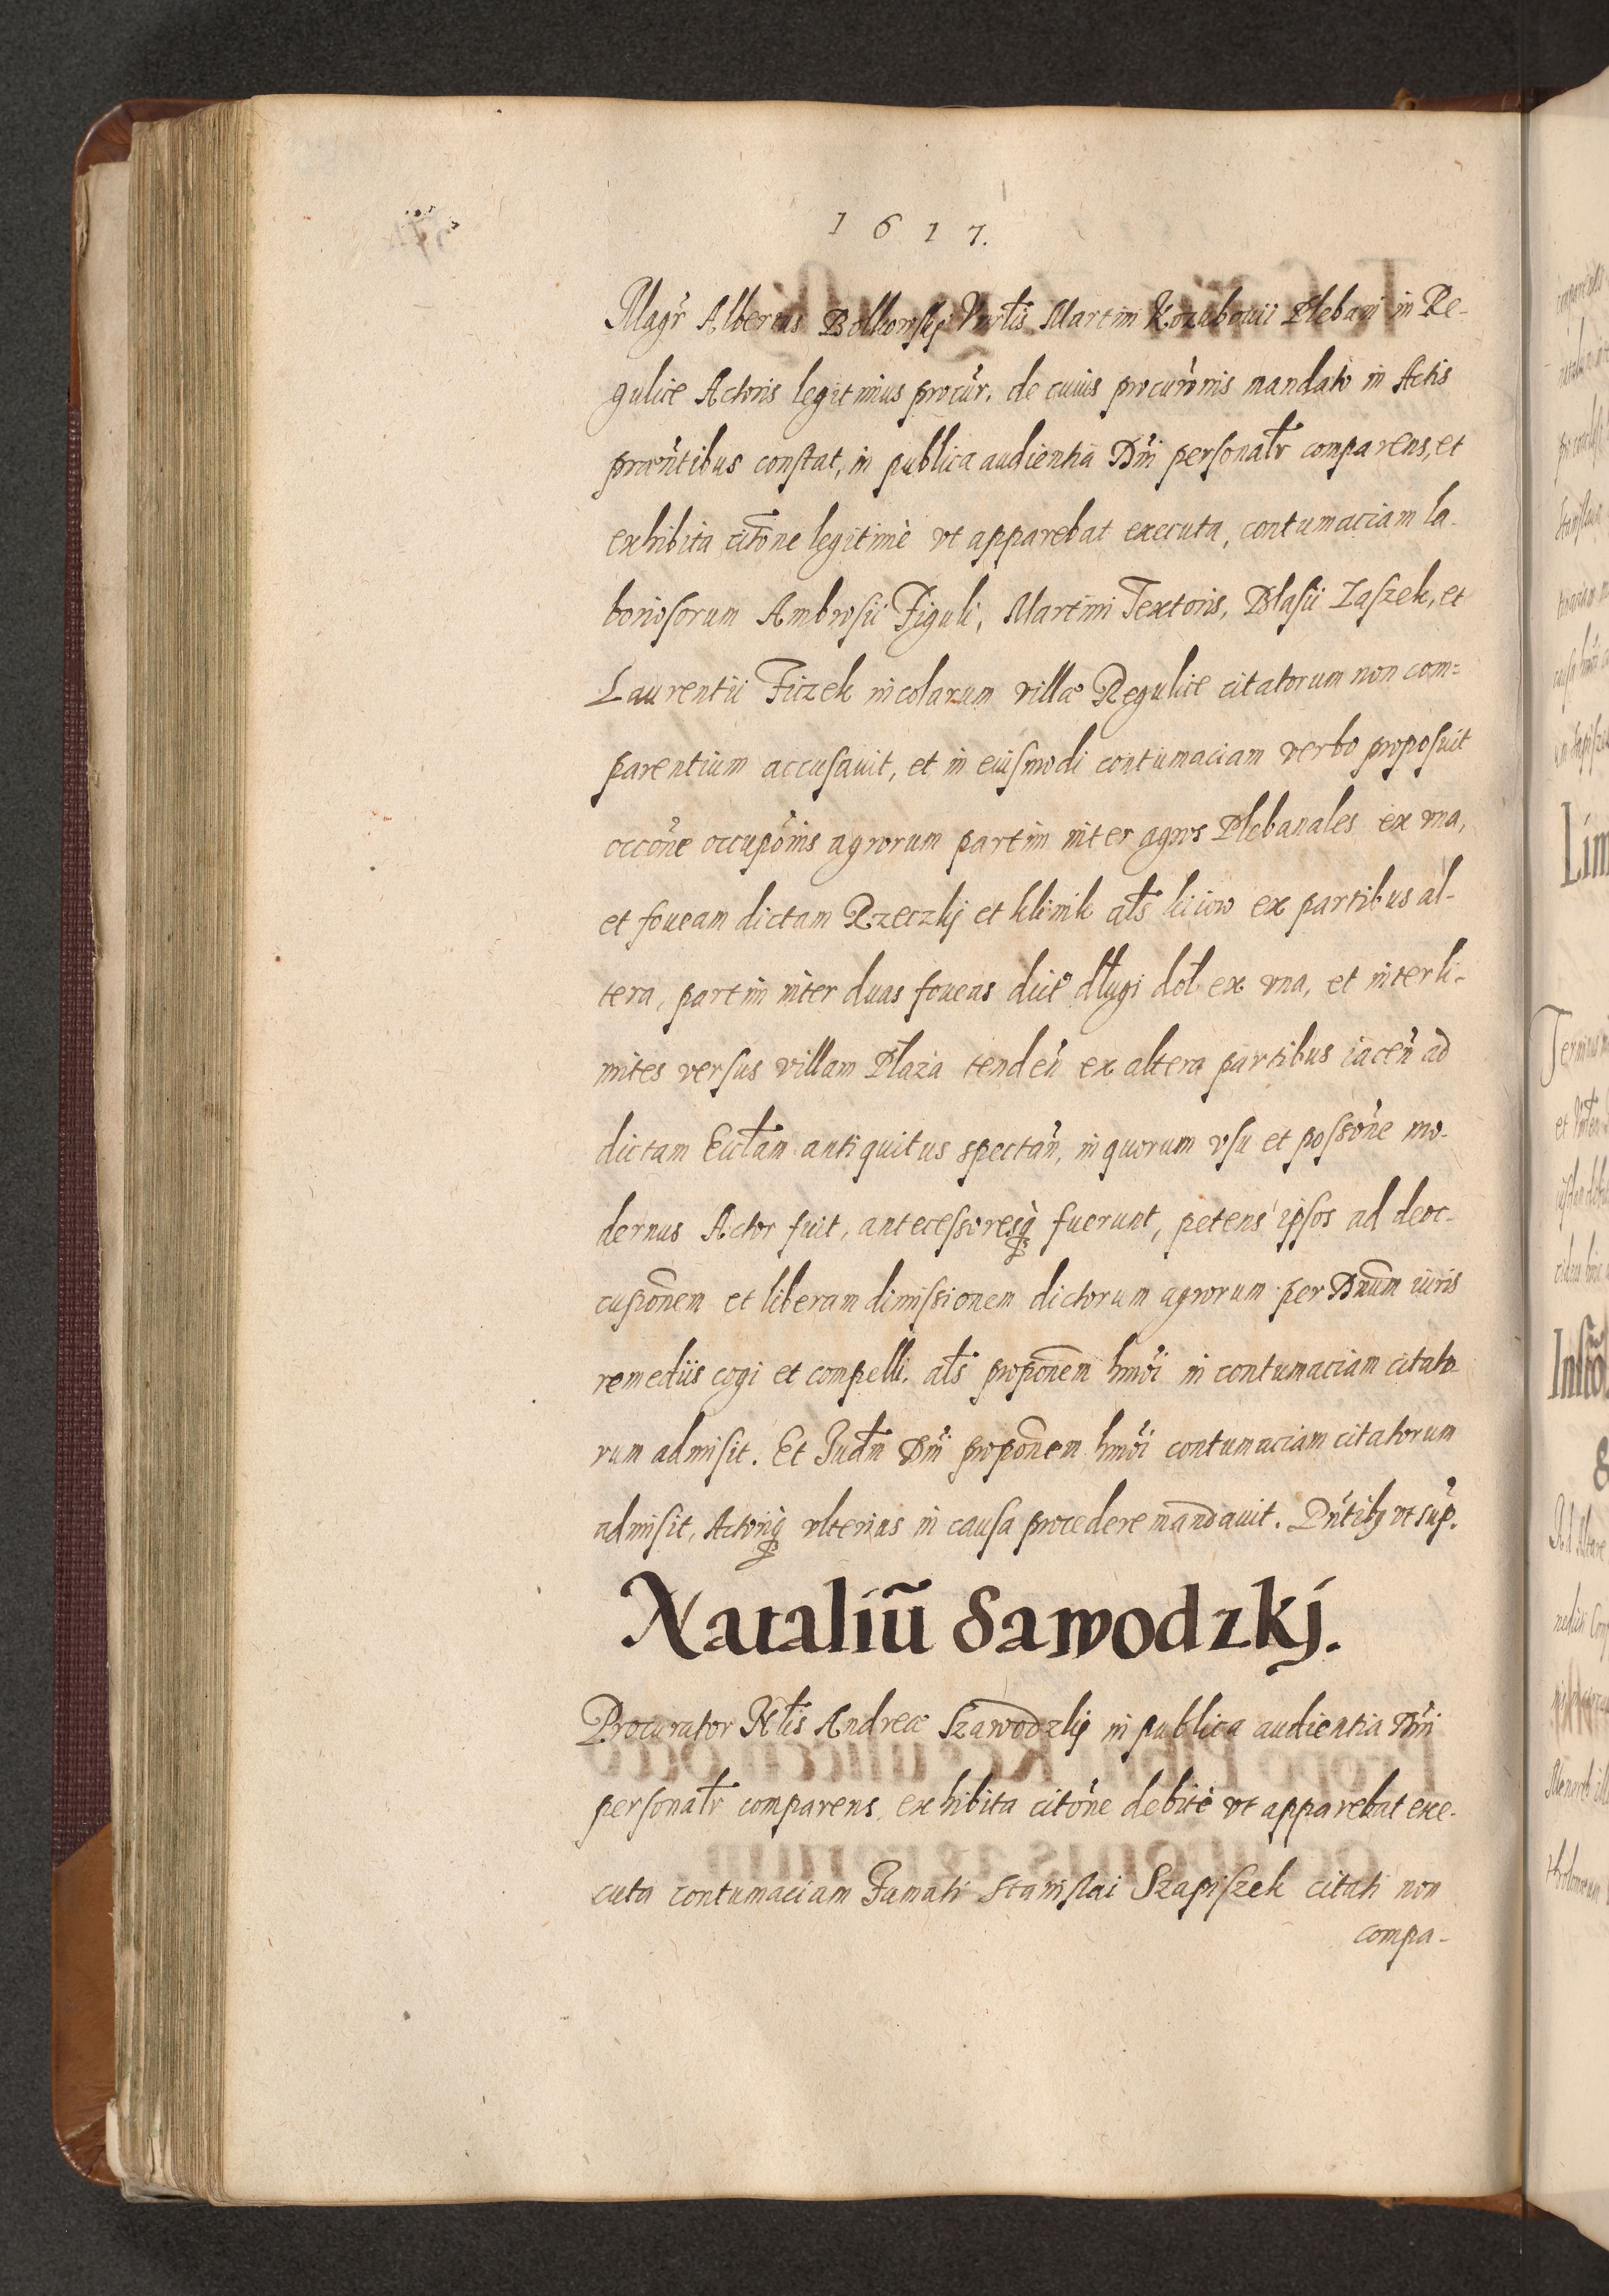 1 6 1 7.
Magr̃ Albertus Bolkowskj Vnrlis Martini Kozubowii Plebani in Re-
gulice Actoris legitimus procur̃. de cuius procurõnis mandato in Actis
præñtibus constat, in publica audientia Dñi personalr̃ comparens, et
exhibita citõne legitimè vt apparebat executa, contumaciam la-
boriosorum Ambrosii Figuli, Martini Textoris, Blasii Zaszek, et
Laurentii Ficzek incolarum villæ Regulice citatorum non com=
parentium accusauit, et in eiusmodi contumaciam verbo proposuit
occõne occupõnis agrorum partim inter agros Plebanales ex vna,
et foueam dictam Rzeczkj et klinik als kiiow ex partibus al-
tera, partim inter duas foueas dict dlugi dol ex vna, et inter li-
mites versus villam Płaza tendeñ ex altera partibus iaceñ ad
dictam Eccl̃am antiquitus spectañ, in quorum vsu et possõne mo-
dernus Actor fuit, antecessoresq̃ fuerunt, petens ipsos ad deoc-
cupõnem et liberam dimissionem dictorum agrorum per Dnum iuris
remediis cogi et compelli, als propõnem hmõi in contumaciam citato
rum admisit. Et Judm Dñi propõnem hmõi contumaciam citatorum
admisit, Actoriq̃ vlterius in causa procedere mandauit. Pñtibq vt sup̃.
Nataliũ Sawodzkj.
Procurator Nlis Andreæ Szawodzkj in publica audientia Dñi
personalr̃ comparens exhibita citõne debitè vt apparebat exe-
cuta contumaciam Famati Stanislai Szapiszek citati non
compa-